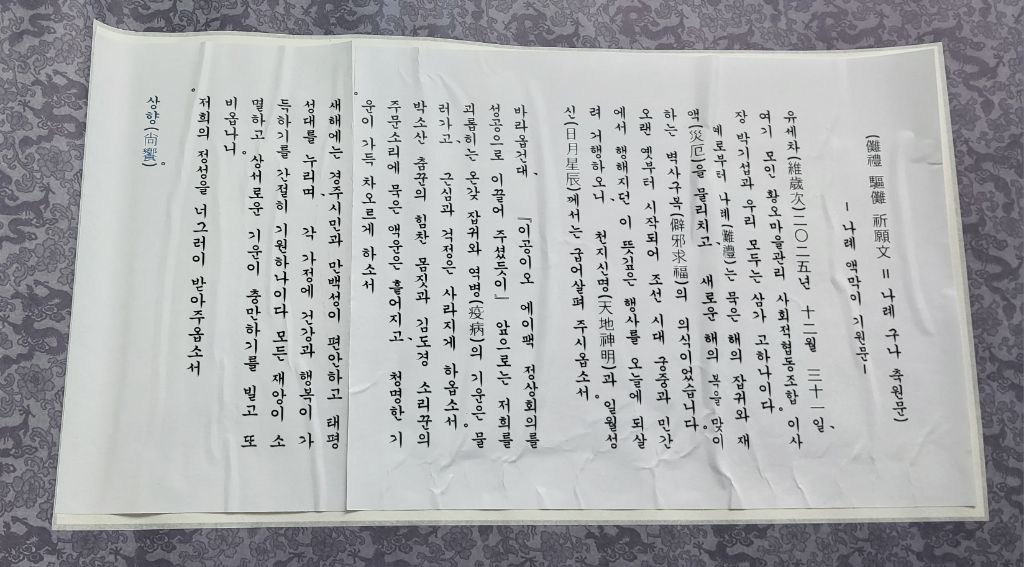 (儺禮 驅儺 祈願文 = 나례 구나 축원문)
- 나례 액막이 기원문-
유세차(維歲次)二○二五년 十二월 三十一일、
여기 모인 황오마을관리 사회적협동조합 이사
장 박기섭과 우리 모두는 삼가 고하나이다。
예로부터 나례(儺禮)는 묵은 해의 잡귀와 재
액(災厄)을 물리치고、 새로운 해의 복을 맞이
하는 벽사구복(僻邪求福)의 의식이었습니다。
오랜 옛부터 시작되어 조선 시대 궁중과 민간
에서 행해지던 이 뜻깊은 행사를 오늘에 되살
려 거행하오니、 천지신명(天地神明)과 일월성
신(日月星辰)께서는 굽어살펴 주시옵소서。
바라옵건대、 『이공이오 에이팩 정상회의를
성공으로 이끌어 주셨듯이』 앞으로는 저희를
괴롭히는 온갖 잡귀와 역병(疫病)의 기운은 물
러가고、 근심과 걱정은 사라지게 하옵소서。
박소산 춤꾼의 힘찬 몸짓과 김도경 소리꾼의
주문소리에 묵은 액운은 흩어지고、 청명한 기
운이 가득 차오르게 하소서。
새해에는 경주시민과 만백성이 편안하고 태평
성대를 누리며、 각 가정에 건강과 행복이 가
득하기를 간절히 기원하나이다 모든 재앙이 소
멸하고、 상서로운 기운이 충만하기를 빌고 또
비옵나니。
저희의 정성을 너그러이 받아주옵소서。
상향(尙饗)。